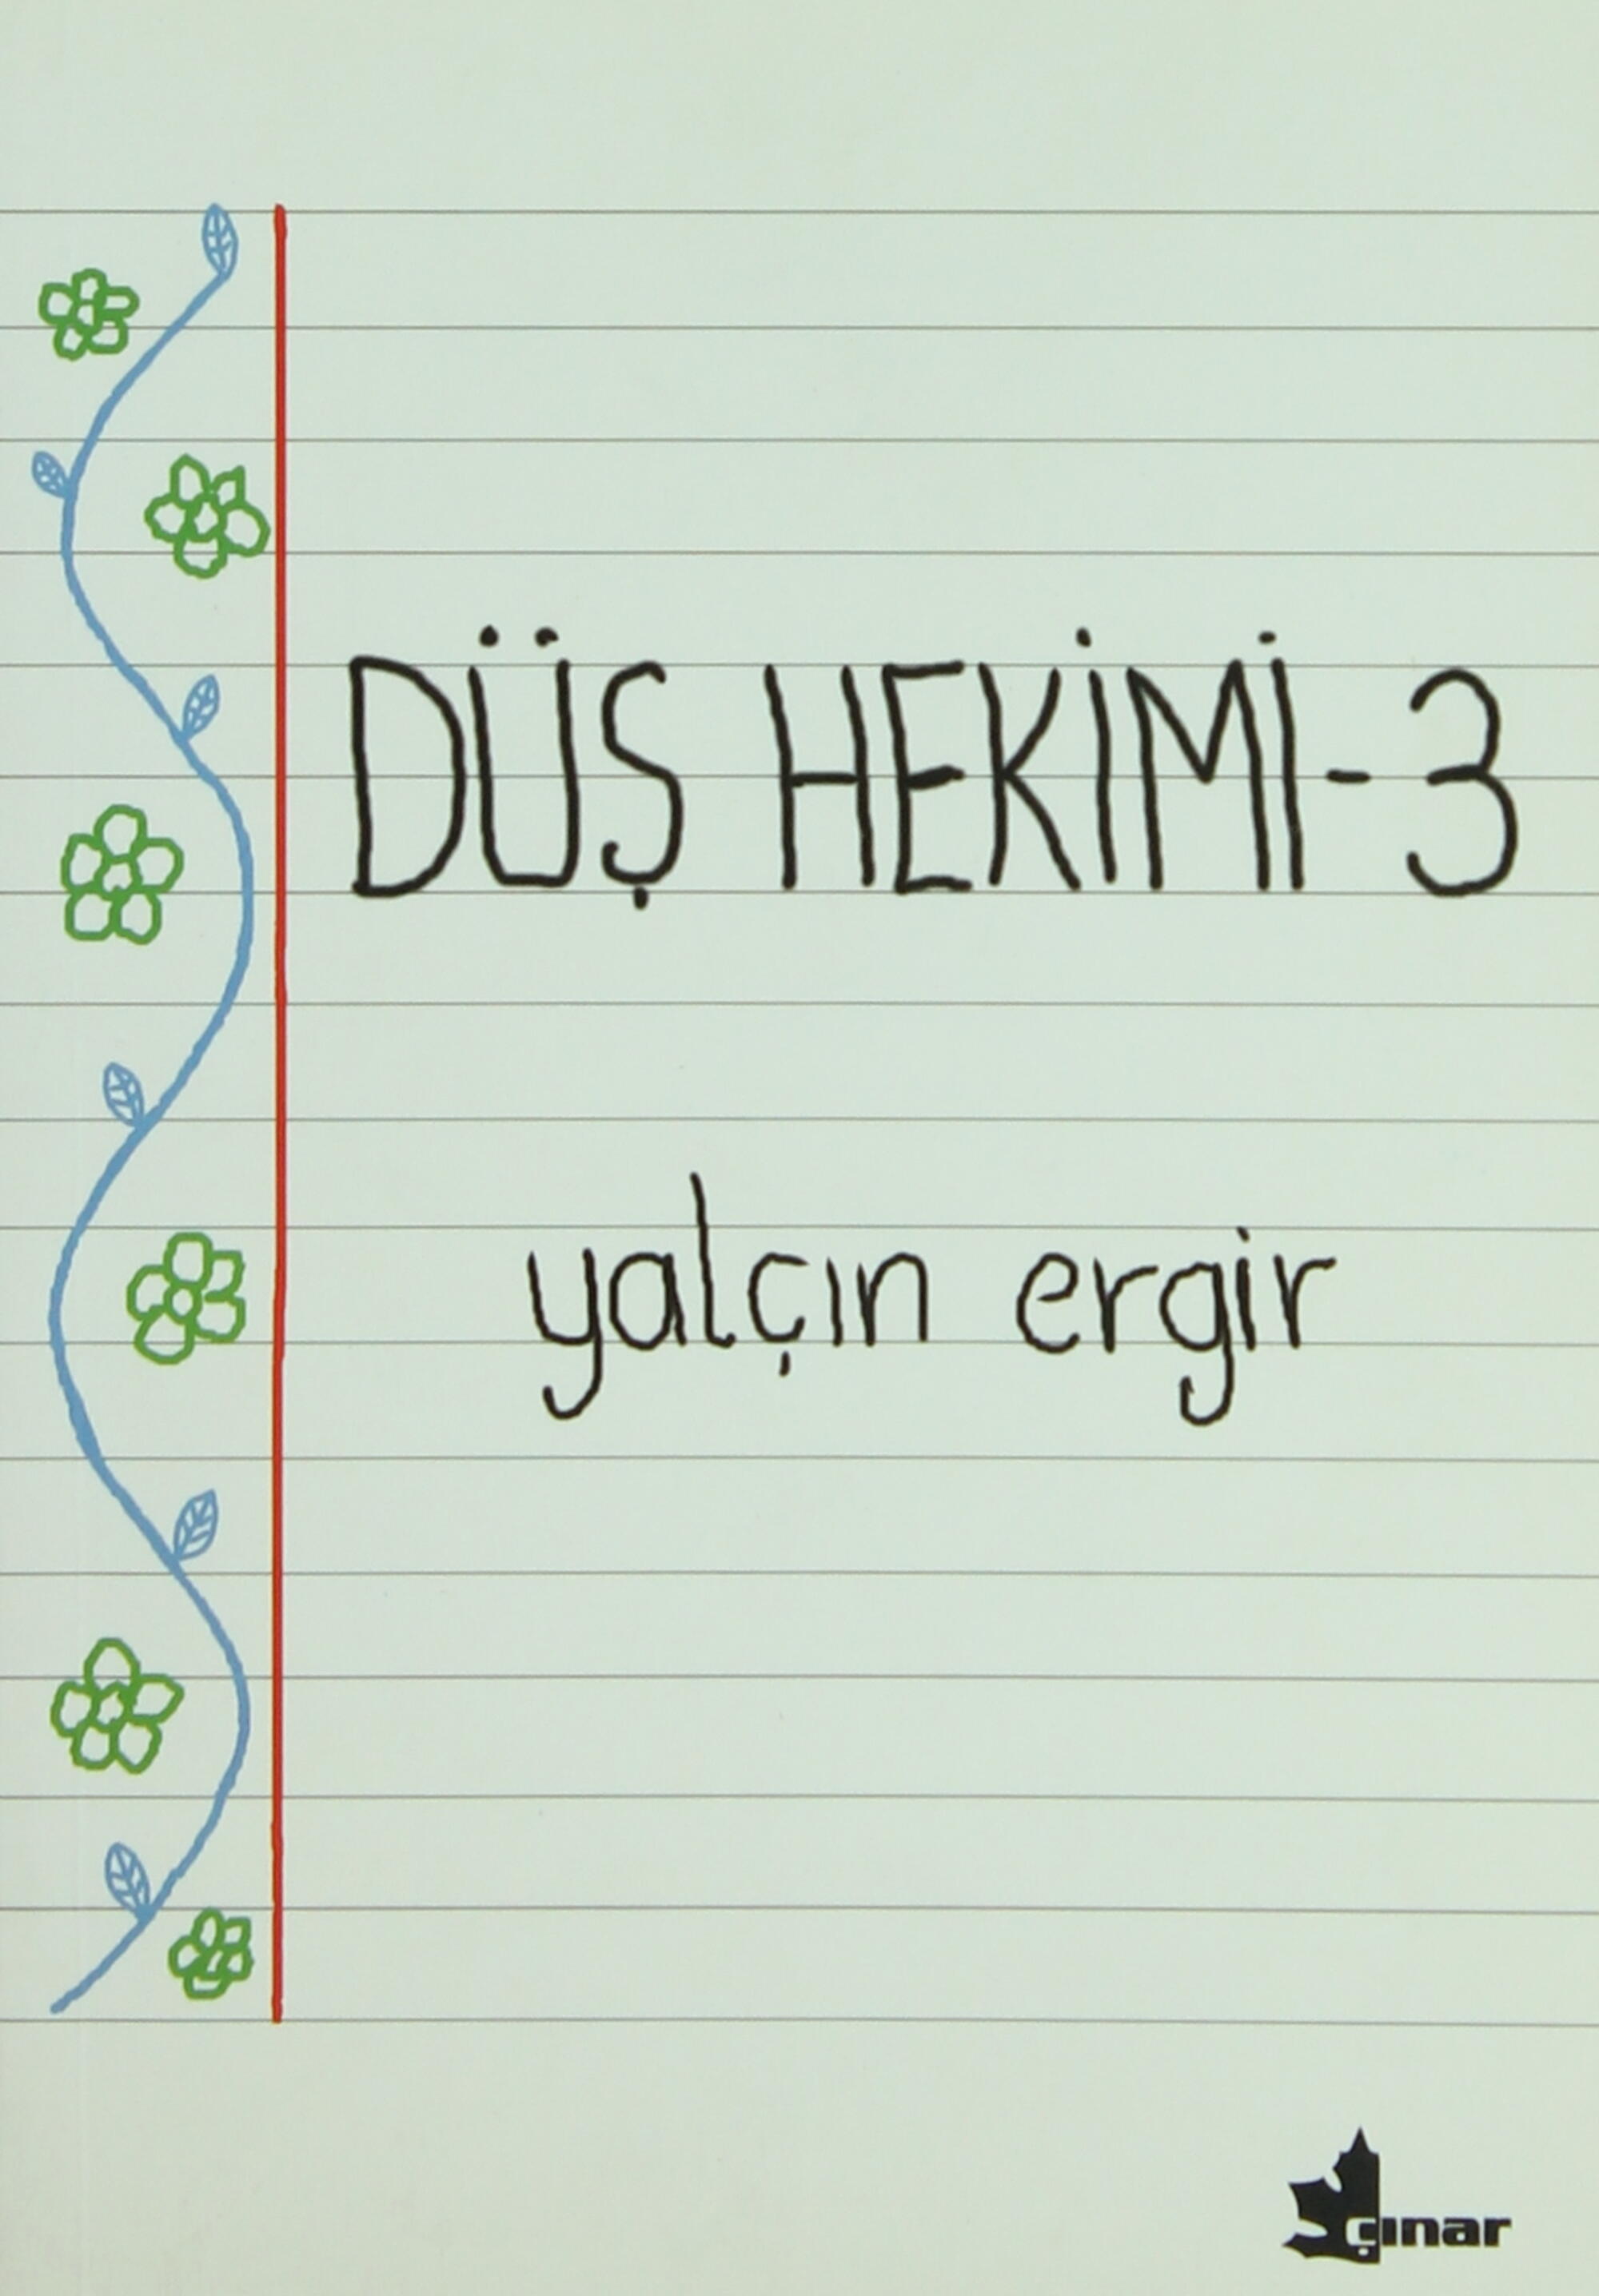 DÜŞ HEKİMİ-3
yalçın ergir
çınar